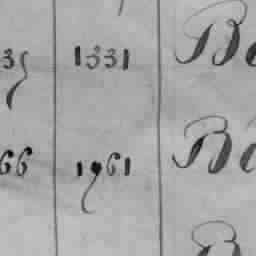 35 1331 Ba
66 1961 Ba
B